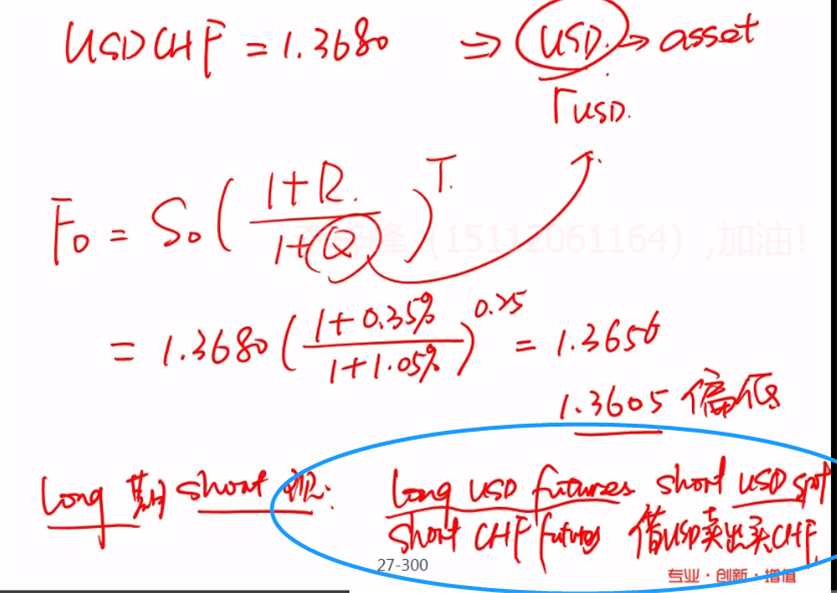 USDCHF = 1.3680 ⇒ USD. → asset
r USD.
F₀ = S₀ ( (1+R.) / (1+Q) )^T.
(15112061164) ,加油!
= 1.3680 ( (1+0.35%) / (1+1.05%) )^0.25 = 1.3656
1.3605 偏低
Long 期 short 现: Long USD futures short USD spot
short CHF futures 借USD卖出买CHF
27-300
专业·创新·增值